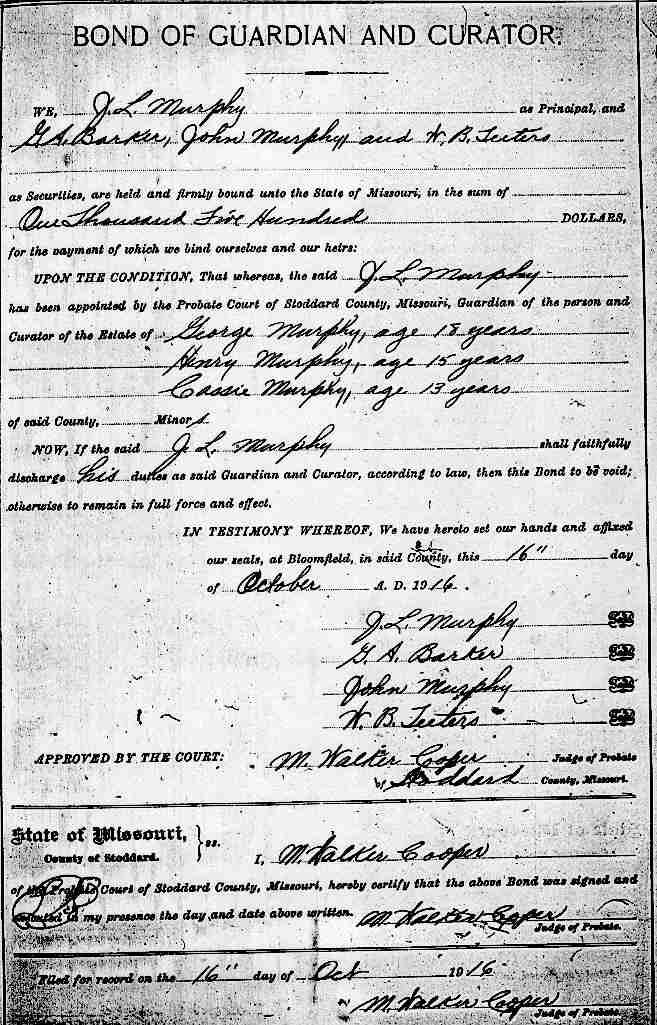 BOND OF GUARDIAN AND CURATOR.
WE, J. L. Murphy as Principal, and
G. A. Barker, John Murphy and W. B. Teeters
as Securities, are held and firmly bound unto the State of Missouri, in the sum of
One Thousand Five Hundred DOLLARS,
for the payment of which we bind ourselves and our heirs:
UPON THE CONDITION, That whereas, the said J. L. Murphy
has been appointed by the Probate Court of Stoddard County, Missouri, Guardian of the person and
Curator of the Estate of George Murphy, age 18 years
Henry Murphy, age 15 years
Cassie Murphy, age 13 years
of said County, Minors
NOW, If the said J. L. Murphy shall faithfully
discharge his duties as said Guardian and Curator, according to law, then this Bond to be void;
otherwise to remain in full force and effect.
IN TESTIMONY WHEREOF, We have hereto set our hands and affixed
our seals, at Bloomfield, in said County, this 16" day
of October A. D. 1916.
J. L. Murphy
G. A. Barker
John Murphy
W. B. Teeters
APPROVED BY THE COURT: M. Walker Cooper Judge of Probate
of Stoddard County, Missouri.
State of Missouri, } ss.
County of Stoddard. I, M. Walker Cooper
of the Probate Court of Stoddard County, Missouri, hereby certify that the above Bond was signed and
executed in my presence the day and date above written. M. Walker Cooper
Judge of Probate.
Filed for record on the 16" day of Oct 1916
M. Walker Cooper
Judge of Probate.